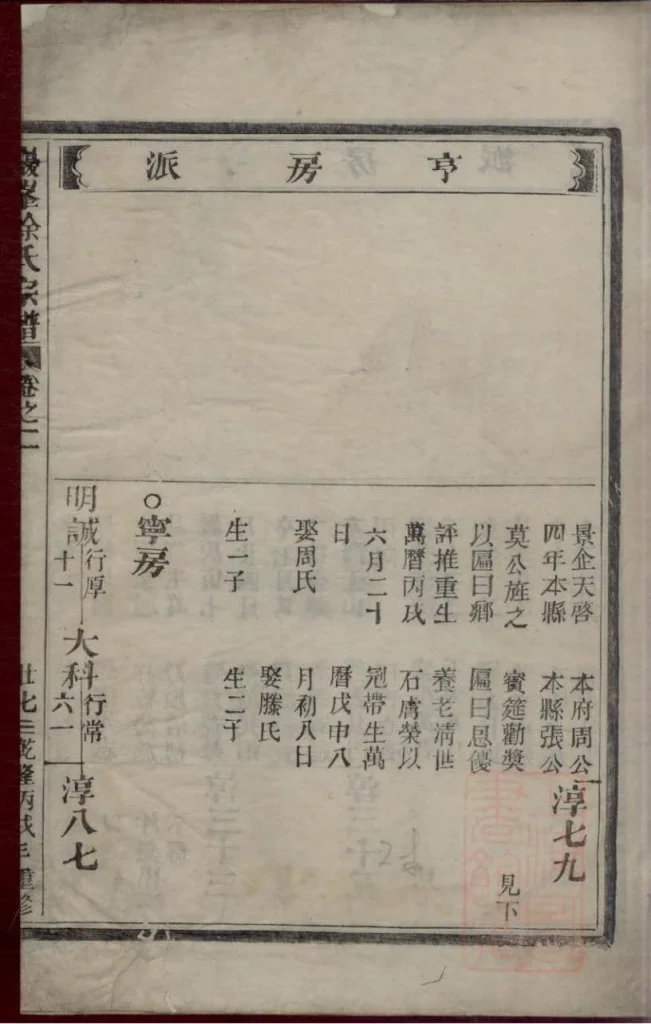 亨房派
景企天啓
四年本縣
莫公旌之
以匾曰鄉
評推重生
萬曆丙戌
六月二十
日
娶周氏
生一子
本府周公
本縣張公
賓筵勸獎
匾曰恩優
養老淸世
石膚榮以
冠帶生萬
曆戊申八
月初八日
娶滕氏
生二子
淳七九
見下
○寧房
明誠行厚十一
大科行常六一
淳八七
峯徐氏宗譜
卷之二
乾隆丙戌年重修